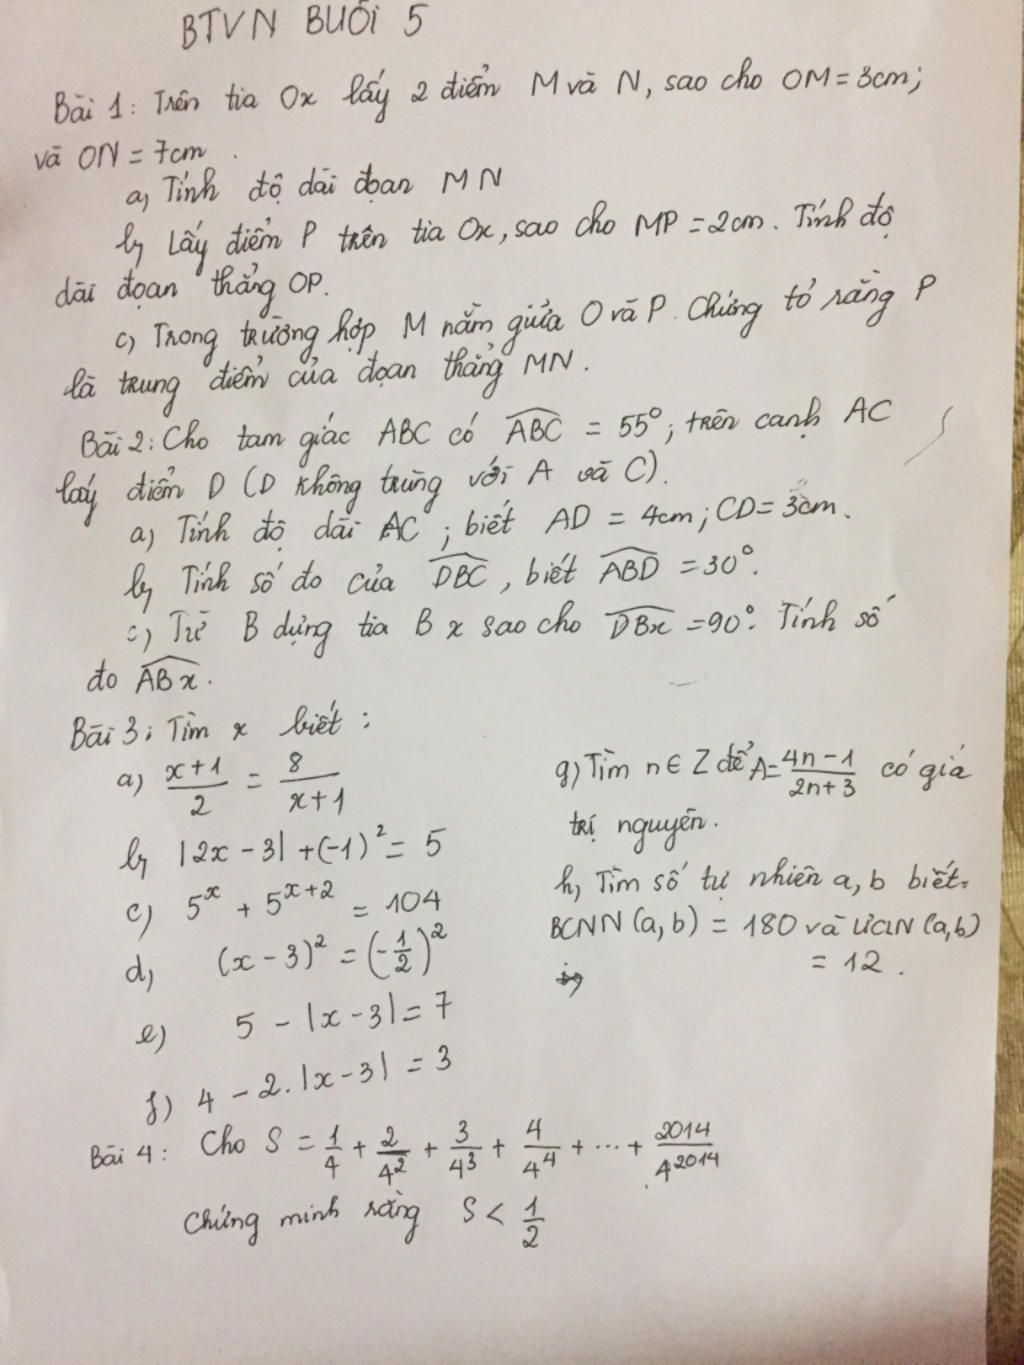 BTVN BUỔI 5
Bài 1: Trên tia Ox lấy 2 điểm M và N, sao cho OM = 3cm;
và ON = 7cm.
a, Tính độ dài đoạn MN
b, Lấy điểm P trên tia Ox, sao cho MP = 2cm. Tính độ
dài đoạn thẳng OP.
c, Trong trường hợp M nằm giữa O và P. Chứng tỏ rằng P
là trung điểm của đoạn thẳng MN.
Bài 2: Cho tam giác ABC có \widehat{ABC} = 55°; trên cạnh AC
lấy điểm D (D không trùng với A và C).
a) Tính độ dài AC; biết AD = 4cm; CD = 3cm.
b, Tính số đo của \widehat{DBC}, biết \widehat{ABD} = 30°.
c, Từ B dựng tia Bx sao cho \widehat{DBx} = 90°. Tính số
đo \widehat{ABx}.
Bài 3: Tìm x biết:
a) \frac{x+1}{2} = \frac{8}{x+1}
b, |2x - 3| + (-1)^2 = 5
c) 5^x + 5^{x+2} = 104
d, (x - 3)^2 = (-\frac{1}{2})^2
e) 5 - |x - 3| = 7
f) 4 - 2.|x - 3| = 3
g) Tìm n ∈ Z để A = \frac{4n-1}{2n+3} có giá
trị nguyên.
h, Tìm số tự nhiên a, b biết.
BCNN (a, b) = 180 và ƯCLN (a,b)
= 12.
Bài 4: Cho S = \frac{1}{4} + \frac{2}{4^2} + \frac{3}{4^3} + \frac{4}{4^4} + ... + \frac{2014}{4^{2014}}
Chứng minh rằng S < \frac{1}{2}